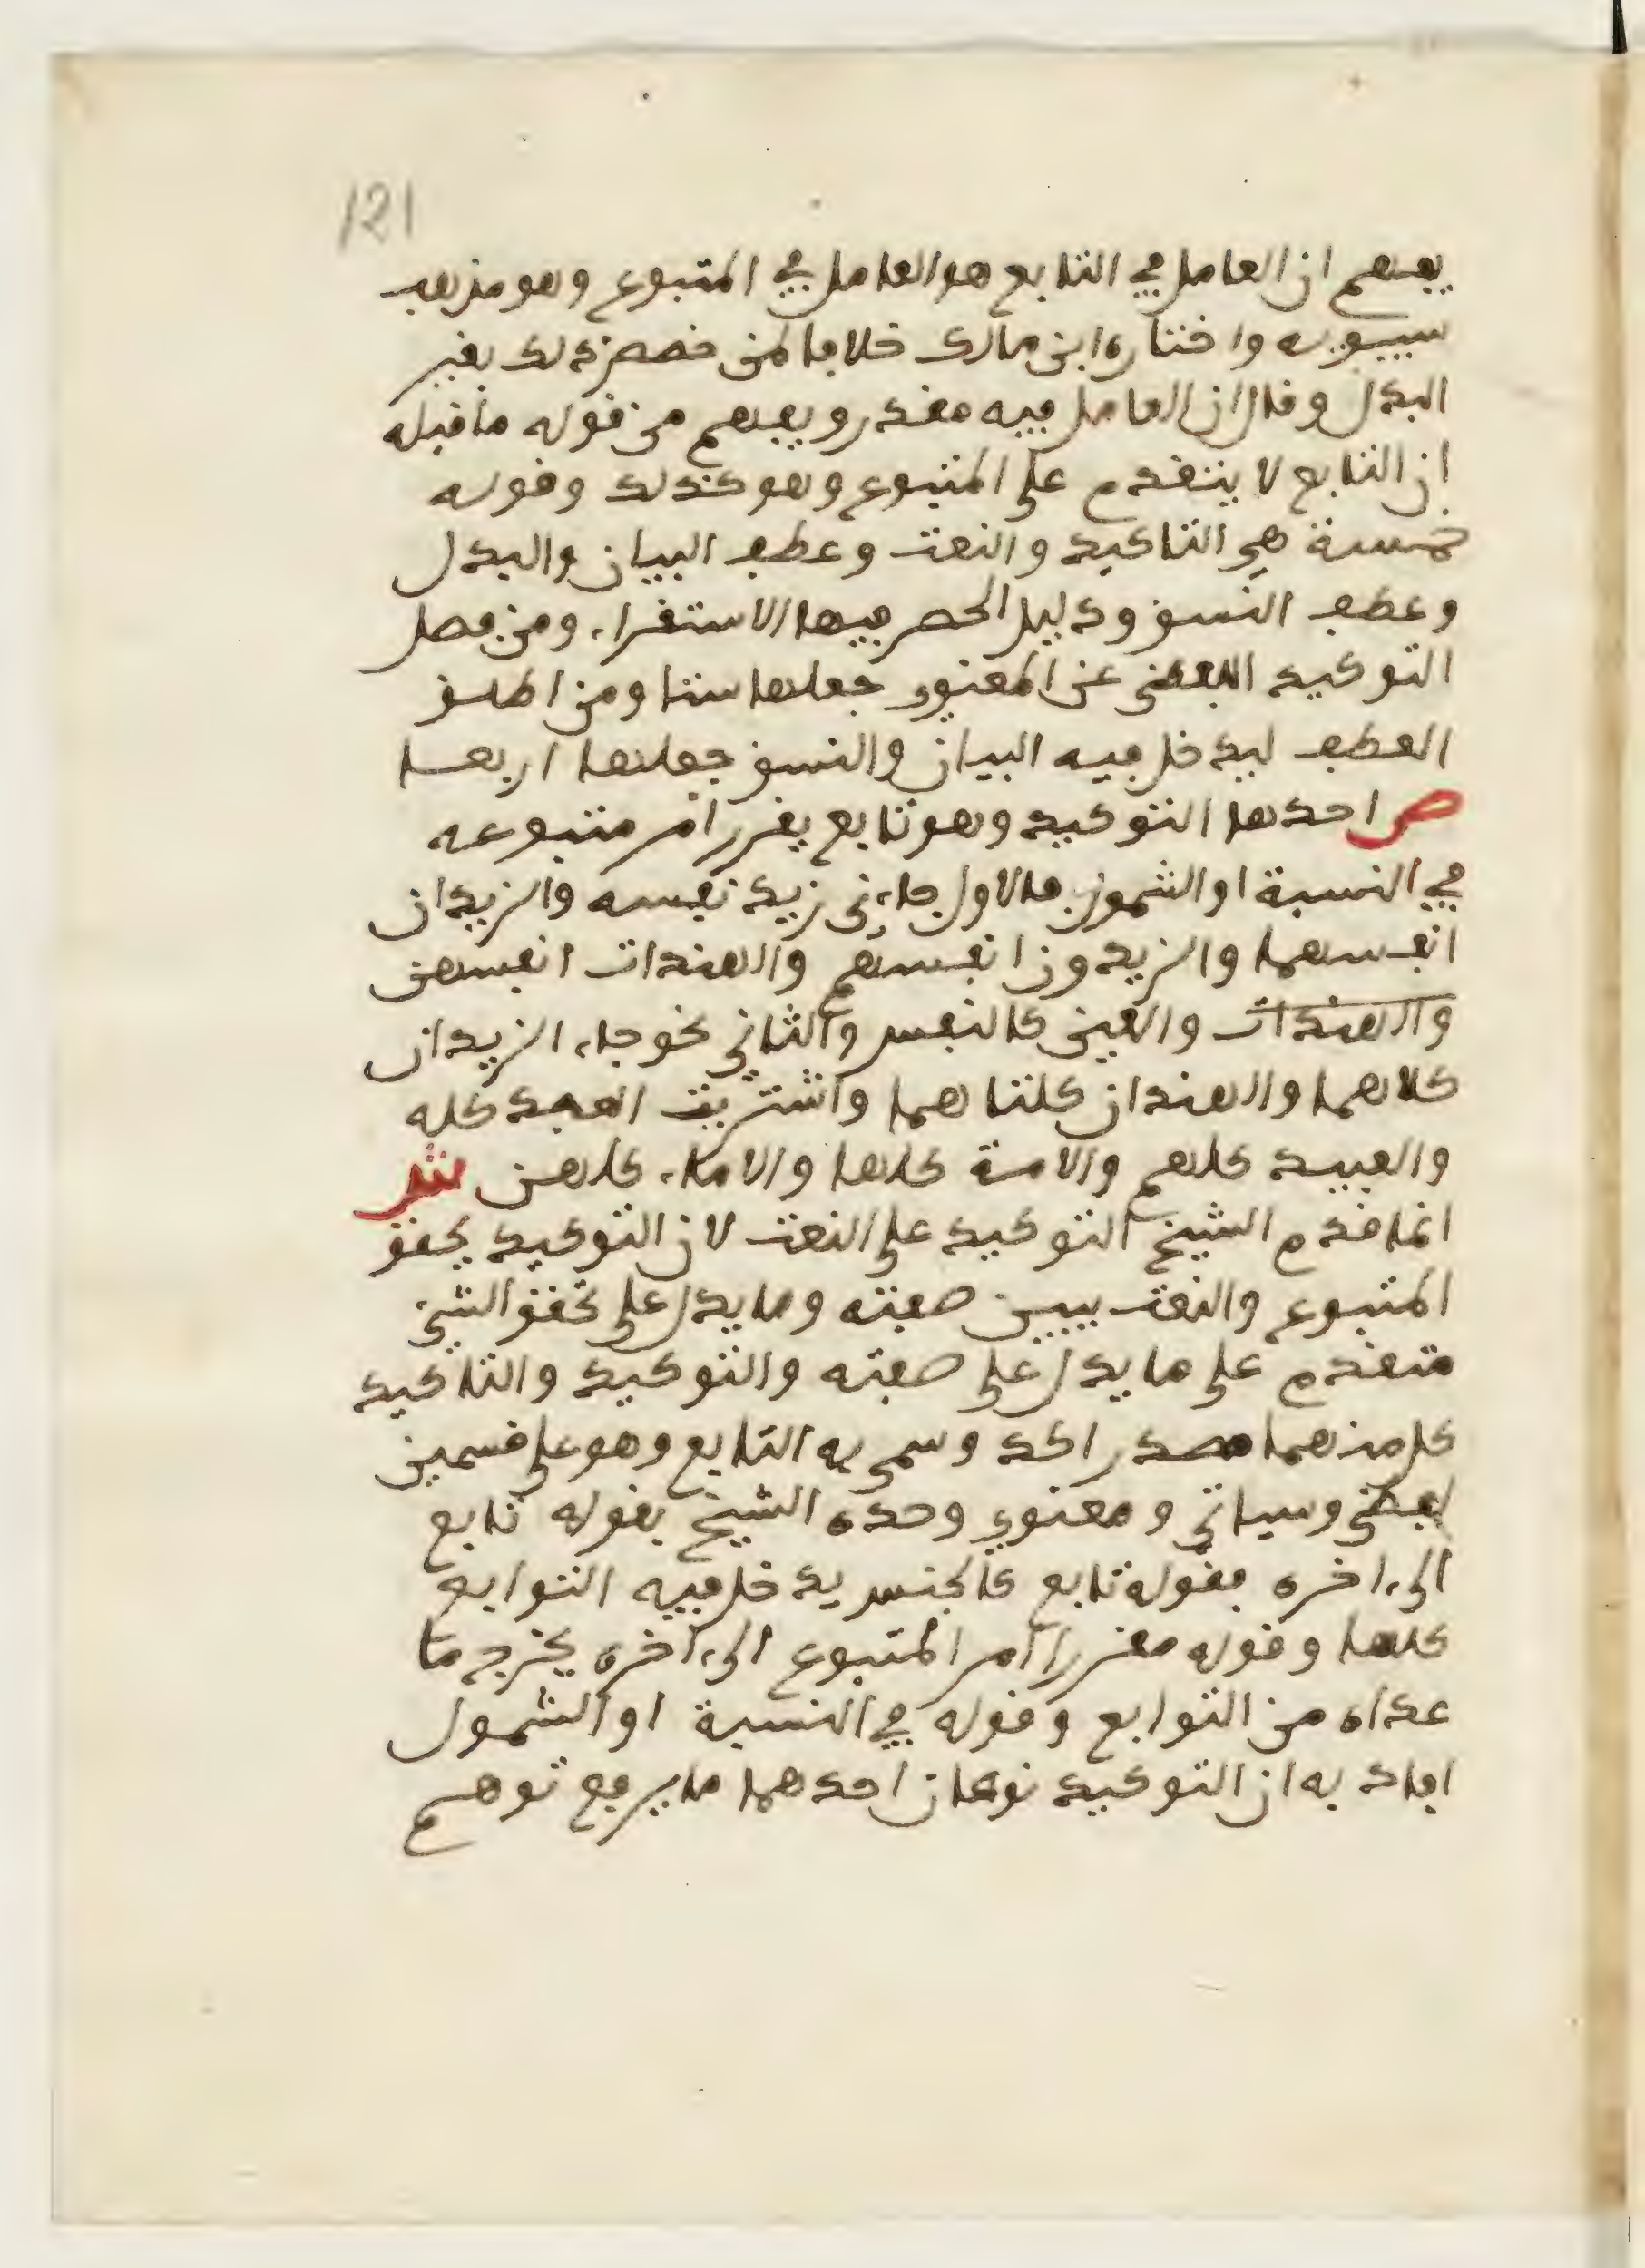 121
يفهم ان العامل في التابع هو العامل في المتبوع وهو مذهب
سيبويه واختاره ابن مالك خلافا لمن خصص ذلك بغير
البدل وقال ان العامل فيه مقدر ويفهم من قوله ما قبله
ان التابع لا يتقدم على المتبوع وهو كذلك وقوله
خمسة هي التاكيد والنعت وعطف البيان والبدل
وعطف النسق ودليل الحصر فيها الاستقراء ومن فصل
التوكيد اللفظي عن المعنوي جعلها ستا ومن اطلق
العطف ليدخل فيه البيان والنسق جعلها اربعا
ص احدها التوكيد وهو تابع يقرر امر متبوعه
في النسبة او الشمول فالاول جاءني زيد نفسه والزيدان
انفسهما والزيدون انفسهم والهندات انفسهن
والهندات والعين كالنفس والثاني نحو جاء الزيدان
كلاهما والهندان كلتاهما واشتريت العبد كله
والعبيد كلهم والامة كلها والاماء كلهن ش
انما قدم الشيخ التوكيد على النعت لان التوكيد يحقق
المتبوع والنعت يبين صفته وما يدل على تحقق الشيء
متقدم على ما يدل على صفته والتوكيد والتاكيد
كل منهما مصدر اكد وسمي به التابع وهو على قسمين
لفظي وسياتي ومعنوي وحده الشيخ بقوله تابع
الى اخره فقوله تابع كالجنس يدخل فيه التوابع
كلها وقوله مقررا امر المتبوع الى آخره يخرج ما
عداه من التوابع وقوله في النسبة او الشمول
افاد به ان التوكيد نوعان احدهما ما يرفع توهم